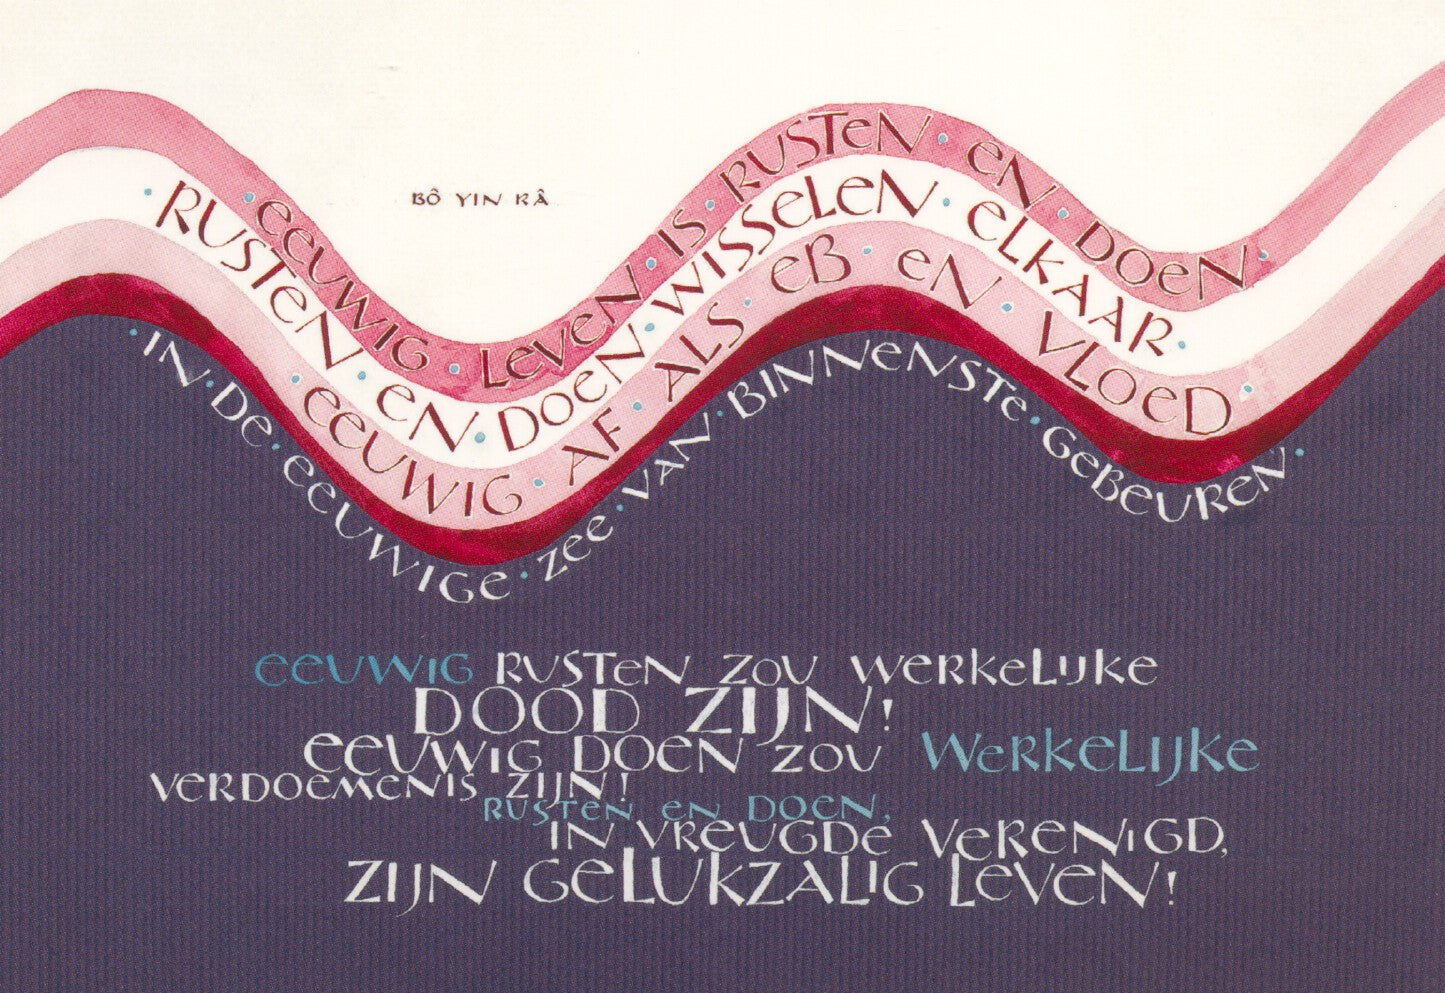 BÔ YIN RÂ
· eeuwig · Leven · is · Rusten · en · Doen ·
· Rusten · en · Doen · wisselen · elkaar ·
· eeuwig · af · als · eb · en · vloed ·
· in · de · eeuwige · zee · van · binnenste · gebeuren ·
eeuwig Rusten zou werkelijke
DOOD ZIJN!
eeuwig Doen zou Werkelijke
verdoemenis zijn!
Rusten en Doen,
in vreugde verenigd,
zijn gelukzalig Leven!